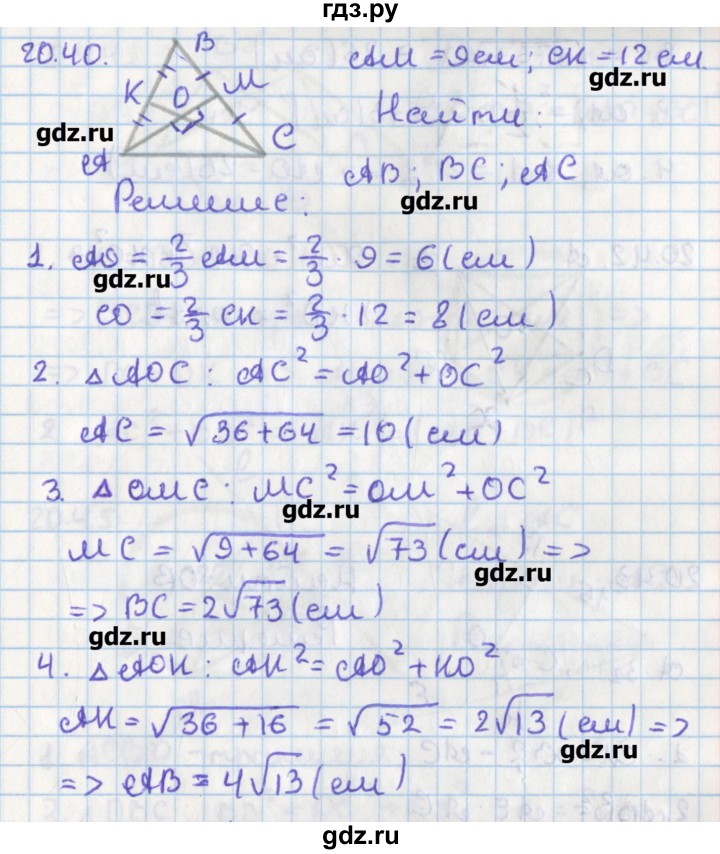 гдз.ру
20.40.
B
K
O
M
A
C
AM = 9 см; CK = 12 см.
gdz.ru
Найти:
gdz.ru
AB; BC; AC
gdz.ru
Решение:
1. AO = 2/3 AM = 2/3 · 9 = 6 (см)
gdz.ru
CO = 2/3 CK = 2/3 · 12 = 8 (см)
2. △ AOC : AC² = AO² + OC²
AC = √36+64 = 10 (см)
3. △ OMC : MC² = OM² + OC²
gdz.ru
MC = √9+64 = √73 (см) =>
gdz.ru
=> BC = 2√73 (см)
gdz.ru
4. △ AOK : AK² = AO² + KO²
AK = √36+16 = √52 = 2√13 (см) =>
gdz.ru
=> AB = 4√13 (см)
gdz.ru